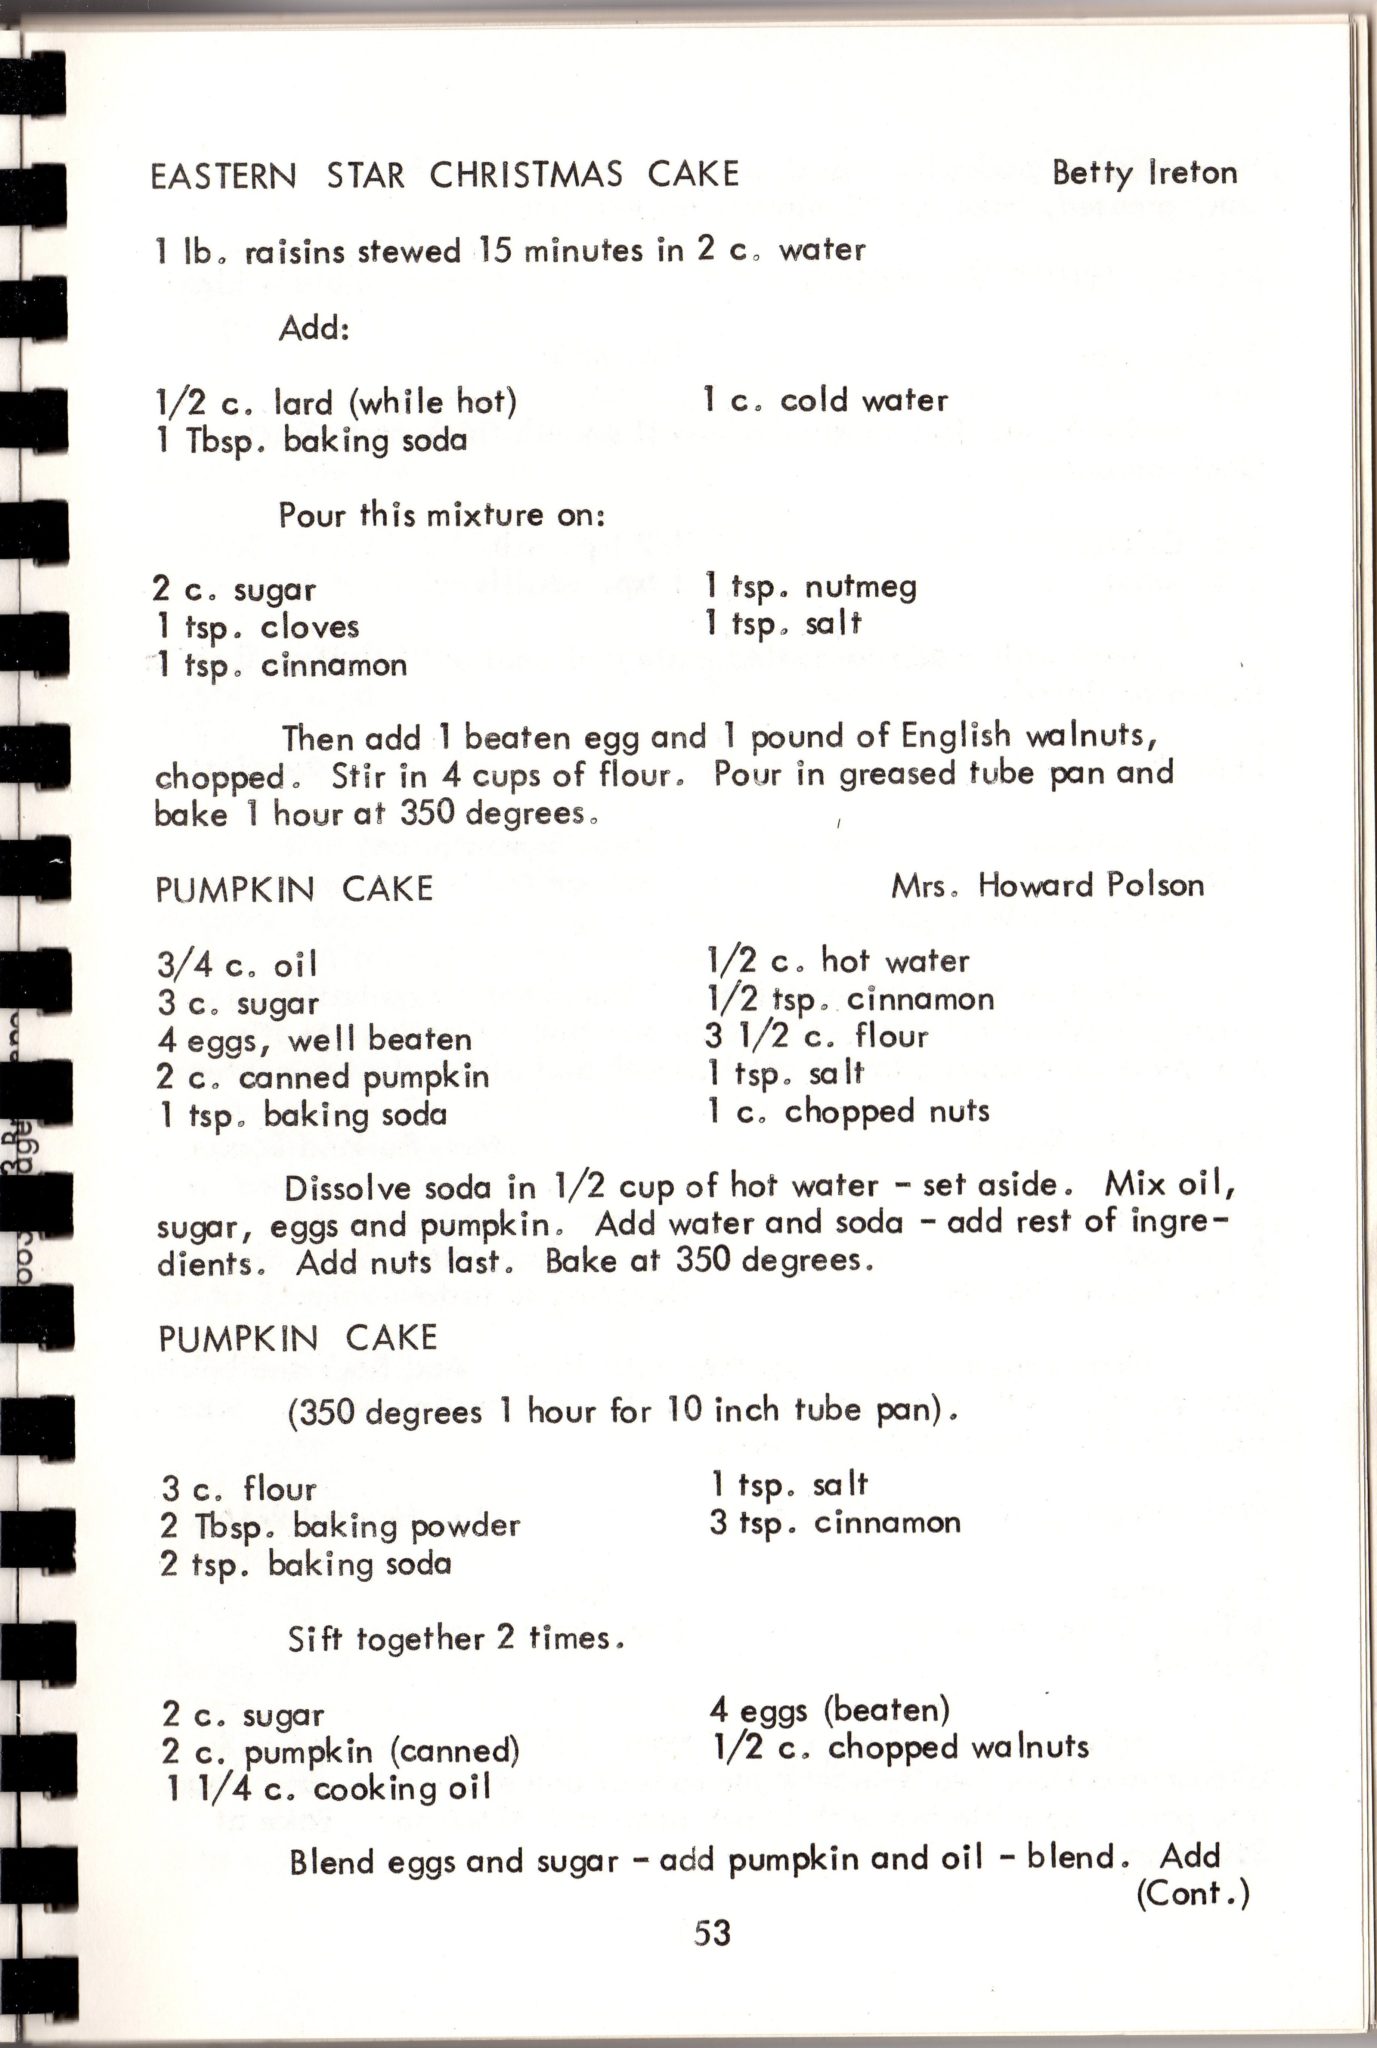 EASTERN STAR CHRISTMAS CAKE Betty Ireton
1 lb. raisins stewed 15 minutes in 2 c. water
Add:
1/2 c. lard (while hot) 1 c. cold water
1 Tbsp. baking soda
Pour this mixture on:
2 c. sugar 1 tsp. nutmeg
1 tsp. cloves 1 tsp. salt
1 tsp. cinnamon
Then add 1 beaten egg and 1 pound of English walnuts,
chopped. Stir in 4 cups of flour. Pour in greased tube pan and
bake 1 hour at 350 degrees.
PUMPKIN CAKE Mrs. Howard Polson
3/4 c. oil 1/2 c. hot water
3 c. sugar 1/2 tsp. cinnamon
4 eggs, well beaten 3 1/2 c. flour
2 c. canned pumpkin 1 tsp. salt
1 tsp. baking soda 1 c. chopped nuts
Dissolve soda in 1/2 cup of hot water - set aside. Mix oil,
sugar, eggs and pumpkin. Add water and soda - add rest of ingre-
dients. Add nuts last. Bake at 350 degrees.
PUMPKIN CAKE
(350 degrees 1 hour for 10 inch tube pan).
3 c. flour 1 tsp. salt
2 Tbsp. baking powder 3 tsp. cinnamon
2 tsp. baking soda
Sift together 2 times.
2 c. sugar 4 eggs (beaten)
2 c. pumpkin (canned) 1/2 c. chopped walnuts
1 1/4 c. cooking oil
Blend eggs and sugar - add pumpkin and oil - blend. Add
(Cont.)
53